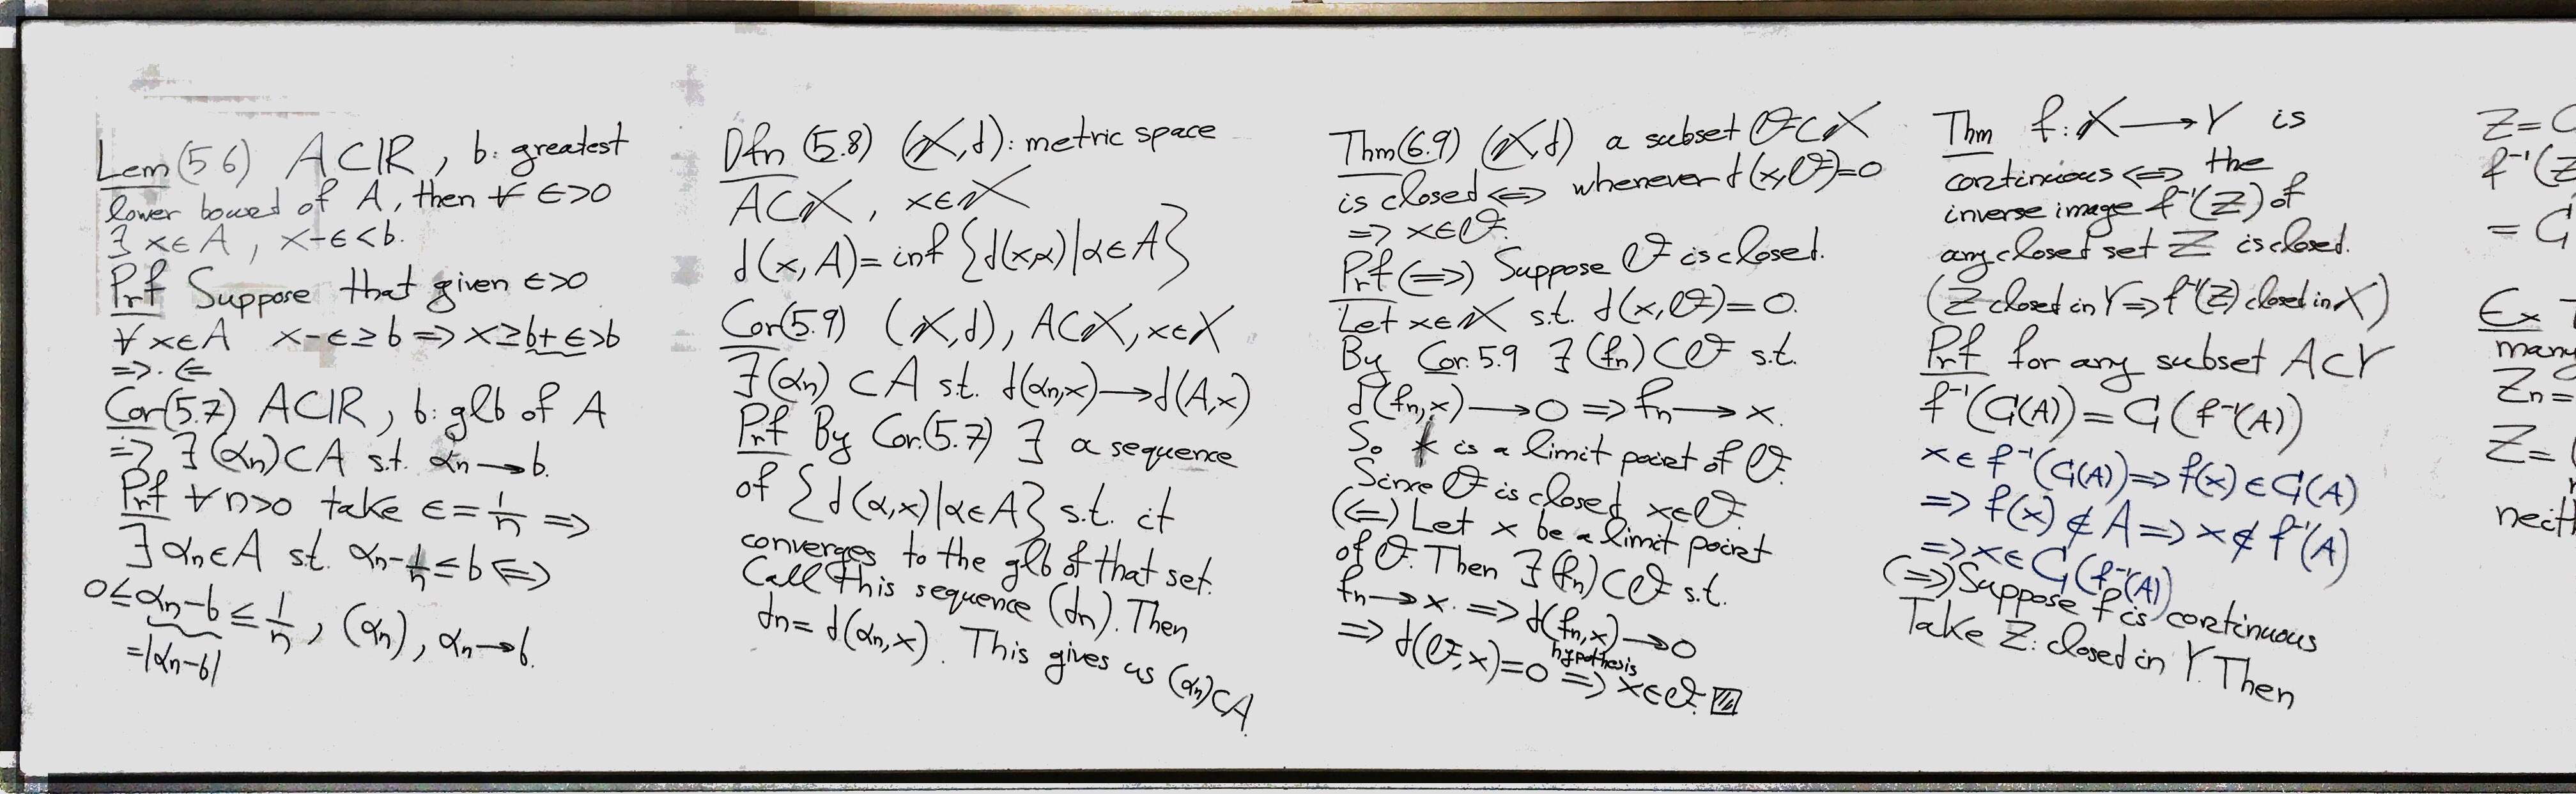 Lem(5.6) A⊂ℝ, b: greatest
lower bound of A, then ∀ ε>0
∃ x∈A, x-ε<b.
Prf Suppose that given ε>0
∀ x∈A x-ε≥b ⇒ x≥b+ε>b
⇒·⇐
Cor(5.7) A⊂ℝ, b: glb of A
⇒ ∃ (αn)⊂A s.t. αn→b.
Prf ∀n>0 take ε=1/n ⇒
∃ αn∈A s.t. αn-1/n≤b ⇔
0≤αn-b≤1/n, (αn), αn→b.
=|αn-b|
Dfn (5.8) (X,d): metric space
A⊂X, x∈X
d(x,A)=inf{d(x,α)|α∈A}
Cor(5.9) (X,d), A⊂X, x∈X
∃(αn)⊂A s.t. d(αn,x)→d(A,x)
Prf By Cor.(5.7) ∃ a sequence
of {d(α,x)|α∈A} s.t. it
converges to the glb of that set.
Call this sequence (dn). Then
dn=d(αn,x). This gives us (αn)⊂A.
Thm(6.9) (X,d) a subset F⊂X
is closed ⇔ whenever d(x,F)=0
⇒ x∈F.
Prf (⇒) Suppose F is closed.
Let x∈X s.t. d(x,F)=0.
By Cor.5.9 ∃ (fn)⊂F s.t.
d(fn,x)→0 ⇒ fn→x.
So x is a limit point of F.
Since F is closed x∈F.
(⇐) Let x be a limit point
of F. Then ∃ (fn)⊂F s.t.
fn→x. ⇒ d(fn,x)→0
⇒ d(F,x)=0 hypothesis ⇒ x∈F.
Thm f: X→Y is
continuous ⇔ the
inverse image f⁻¹(Z) of
any closed set Z is closed.
(Z closed in Y ⇒ f⁻¹(Z) closed in X)
Prf for any subset A⊂Y
f⁻¹(C(A))=C(f⁻¹(A))
x∈f⁻¹(C(A)) ⇒ f(x)∈C(A)
⇒ f(x)∉A ⇒ x∉f⁻¹(A)
⇒ x∈C(f⁻¹(A))
(⇒) Suppose f is continuous
Take Z: closed in Y. Then
Z=
f⁻¹(Z
=C
Ex
many
Zn=
Z=